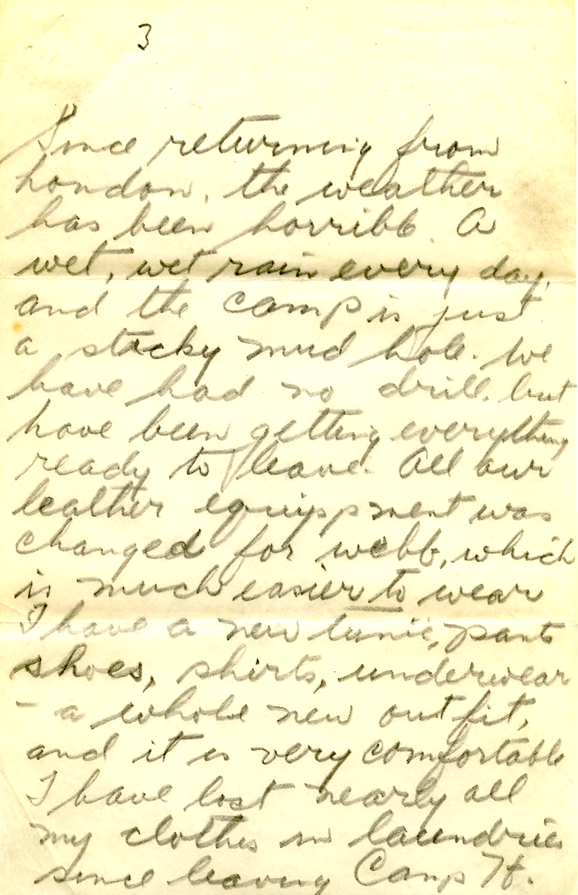 3
Since returning from
London, the weather
has been horrible. A
wet, wet rain every day,
and the camp is just
a sticky mud hole. We
have had no drill. but
have been getting everything
ready to leave. All our
leather equippment was
changed for webb, which
is much easier to wear
I have a new tunic, pants
shoes, shirts, underwear
- a whole new outfit,
and it is very comfortable
I have lost nearly all
my clothes in laundries
since leaving Camp H.